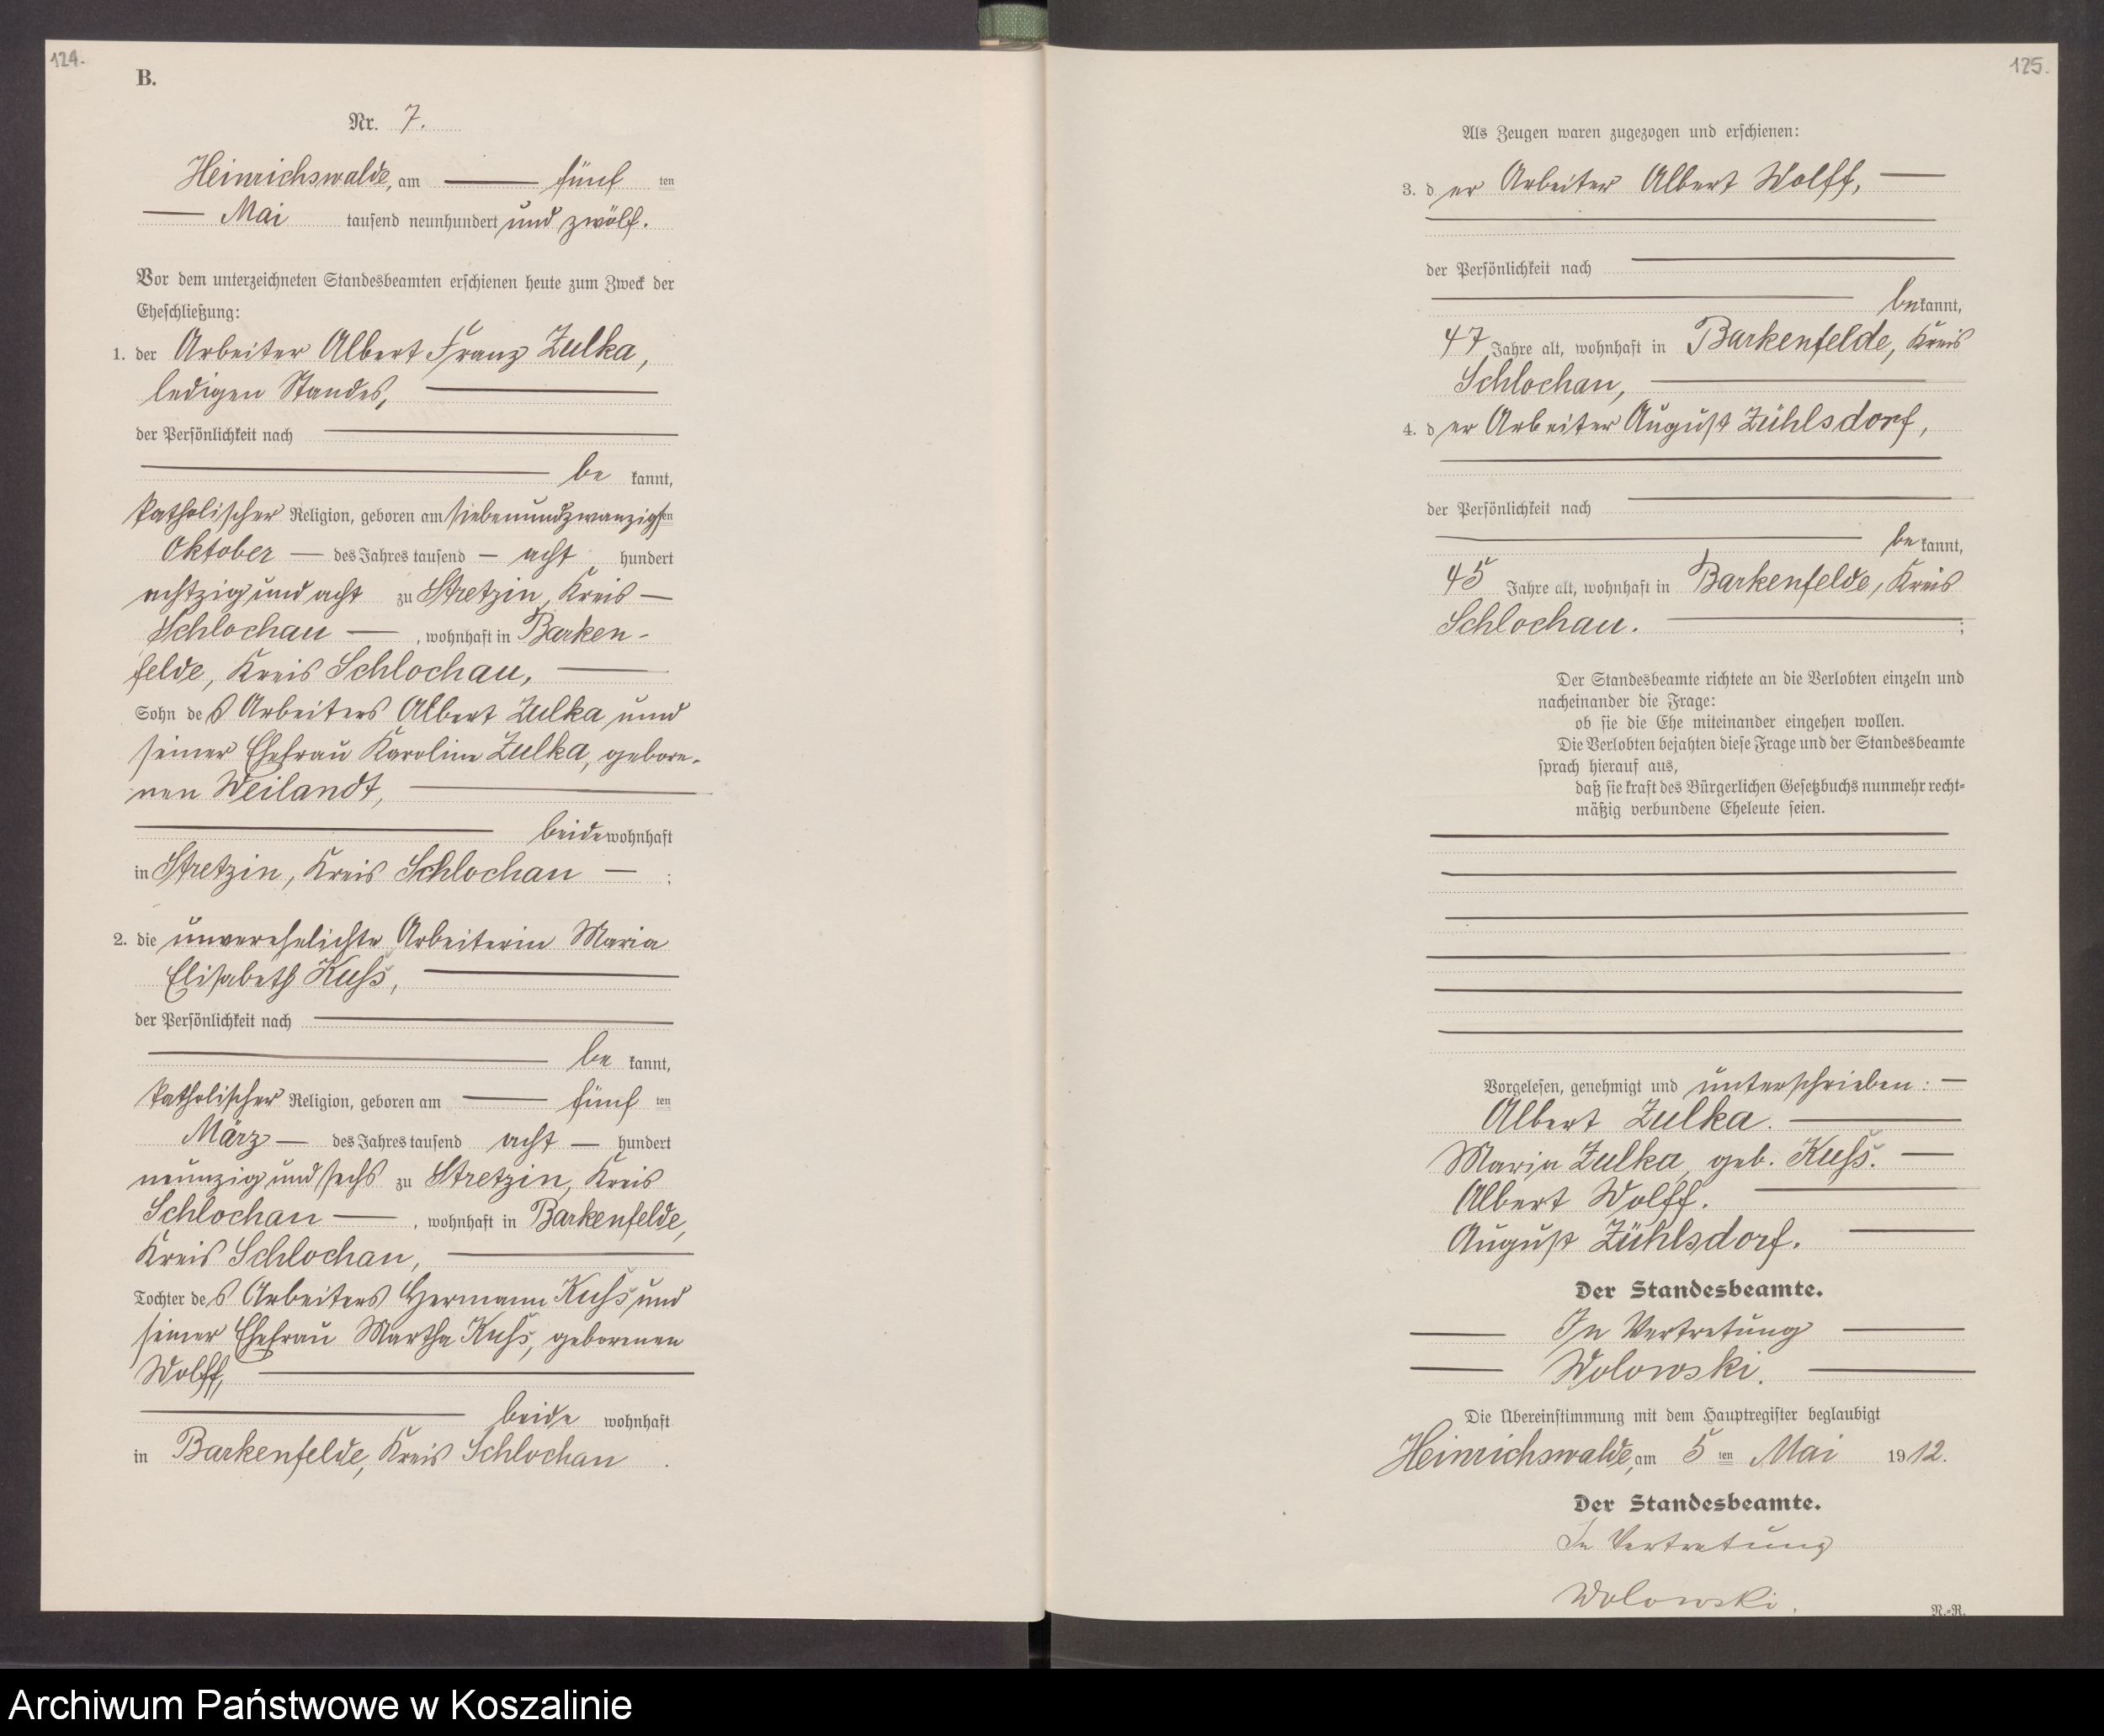 124.
B.
Nr. 7.
Heinrichswalde, am fünf ten
Mai tausend neunhundert und zwölf.
Vor dem unterzeichneten Standesbeamten erschienen heute zum Zweck der
Eheschließung:
1. der Arbeiter Albert Franz Zulka,
ledigen Standes,
der Persönlichkeit nach
be kannt,
katholischer Religion, geboren am siebenundzwanzigsten
Oktober — des Jahres tausend — acht hundert
achtzig und acht zu Stretzin, Kreis —
Schlochau — , wohnhaft in Barken-
felde, Kreis Schlochau,
Sohn des Arbeiters Albert Zulka und
seiner Ehefrau Karoline Zulka, gebore-
nen Weilandt,
beide wohnhaft
in Stretzin, Kreis Schlochau — ;
2. die unverehelichte Arbeiterin Maria
Elisabeth Kuß,
der Persönlichkeit nach
be kannt,
katholischer Religion, geboren am — fünf ten
März — des Jahres tausend acht — hundert
neunzig und sechs zu Stretzin, Kreis
Schlochau — , wohnhaft in Barkenfelde,
Kreis Schlochau,
Tochter des Arbeiters Hermann Kuß und
seiner Ehefrau Martha Kuß, geborenen
Wolff,
beide wohnhaft
in Barkenfelde, Kreis Schlochau .
125.
Als Zeugen waren zugezogen und erschienen:
3. der Arbeiter Albert Wolff, —
der Persönlichkeit nach
bekannt,
47 Jahre alt, wohnhaft in Barkenfelde, Kreis
Schlochau,
4. der Arbeiter August Zühlsdorf,
der Persönlichkeit nach
be kannt,
45 Jahre alt, wohnhaft in Barkenfelde, Kreis
Schlochau. ;
Der Standesbeamte richtete an die Verlobten einzeln und
nacheinander die Frage:
ob sie die Ehe miteinander eingehen wollen.
Die Verlobten bejahten diese Frage und der Standesbeamte
sprach hierauf aus,
daß sie kraft des Bürgerlichen Gesetzbuchs nunmehr recht-
mäßig verbundene Eheleute seien.
Vorgelesen, genehmigt und unterschrieben: —
Albert Zulka. —
Maria Zulka, geb. Kuß. —
Albert Wolff. —
August Zühlsdorf. —
Der Standesbeamte.
In Vertretung
Wolowski.
Die Übereinstimmung mit dem Hauptregister beglaubigt
Heinrichswalde, am 5 ten Mai 1912.
Der Standesbeamte.
In Vertretung
Wolowski.
N.-R.
Archiwum Państwowe w Koszalinie